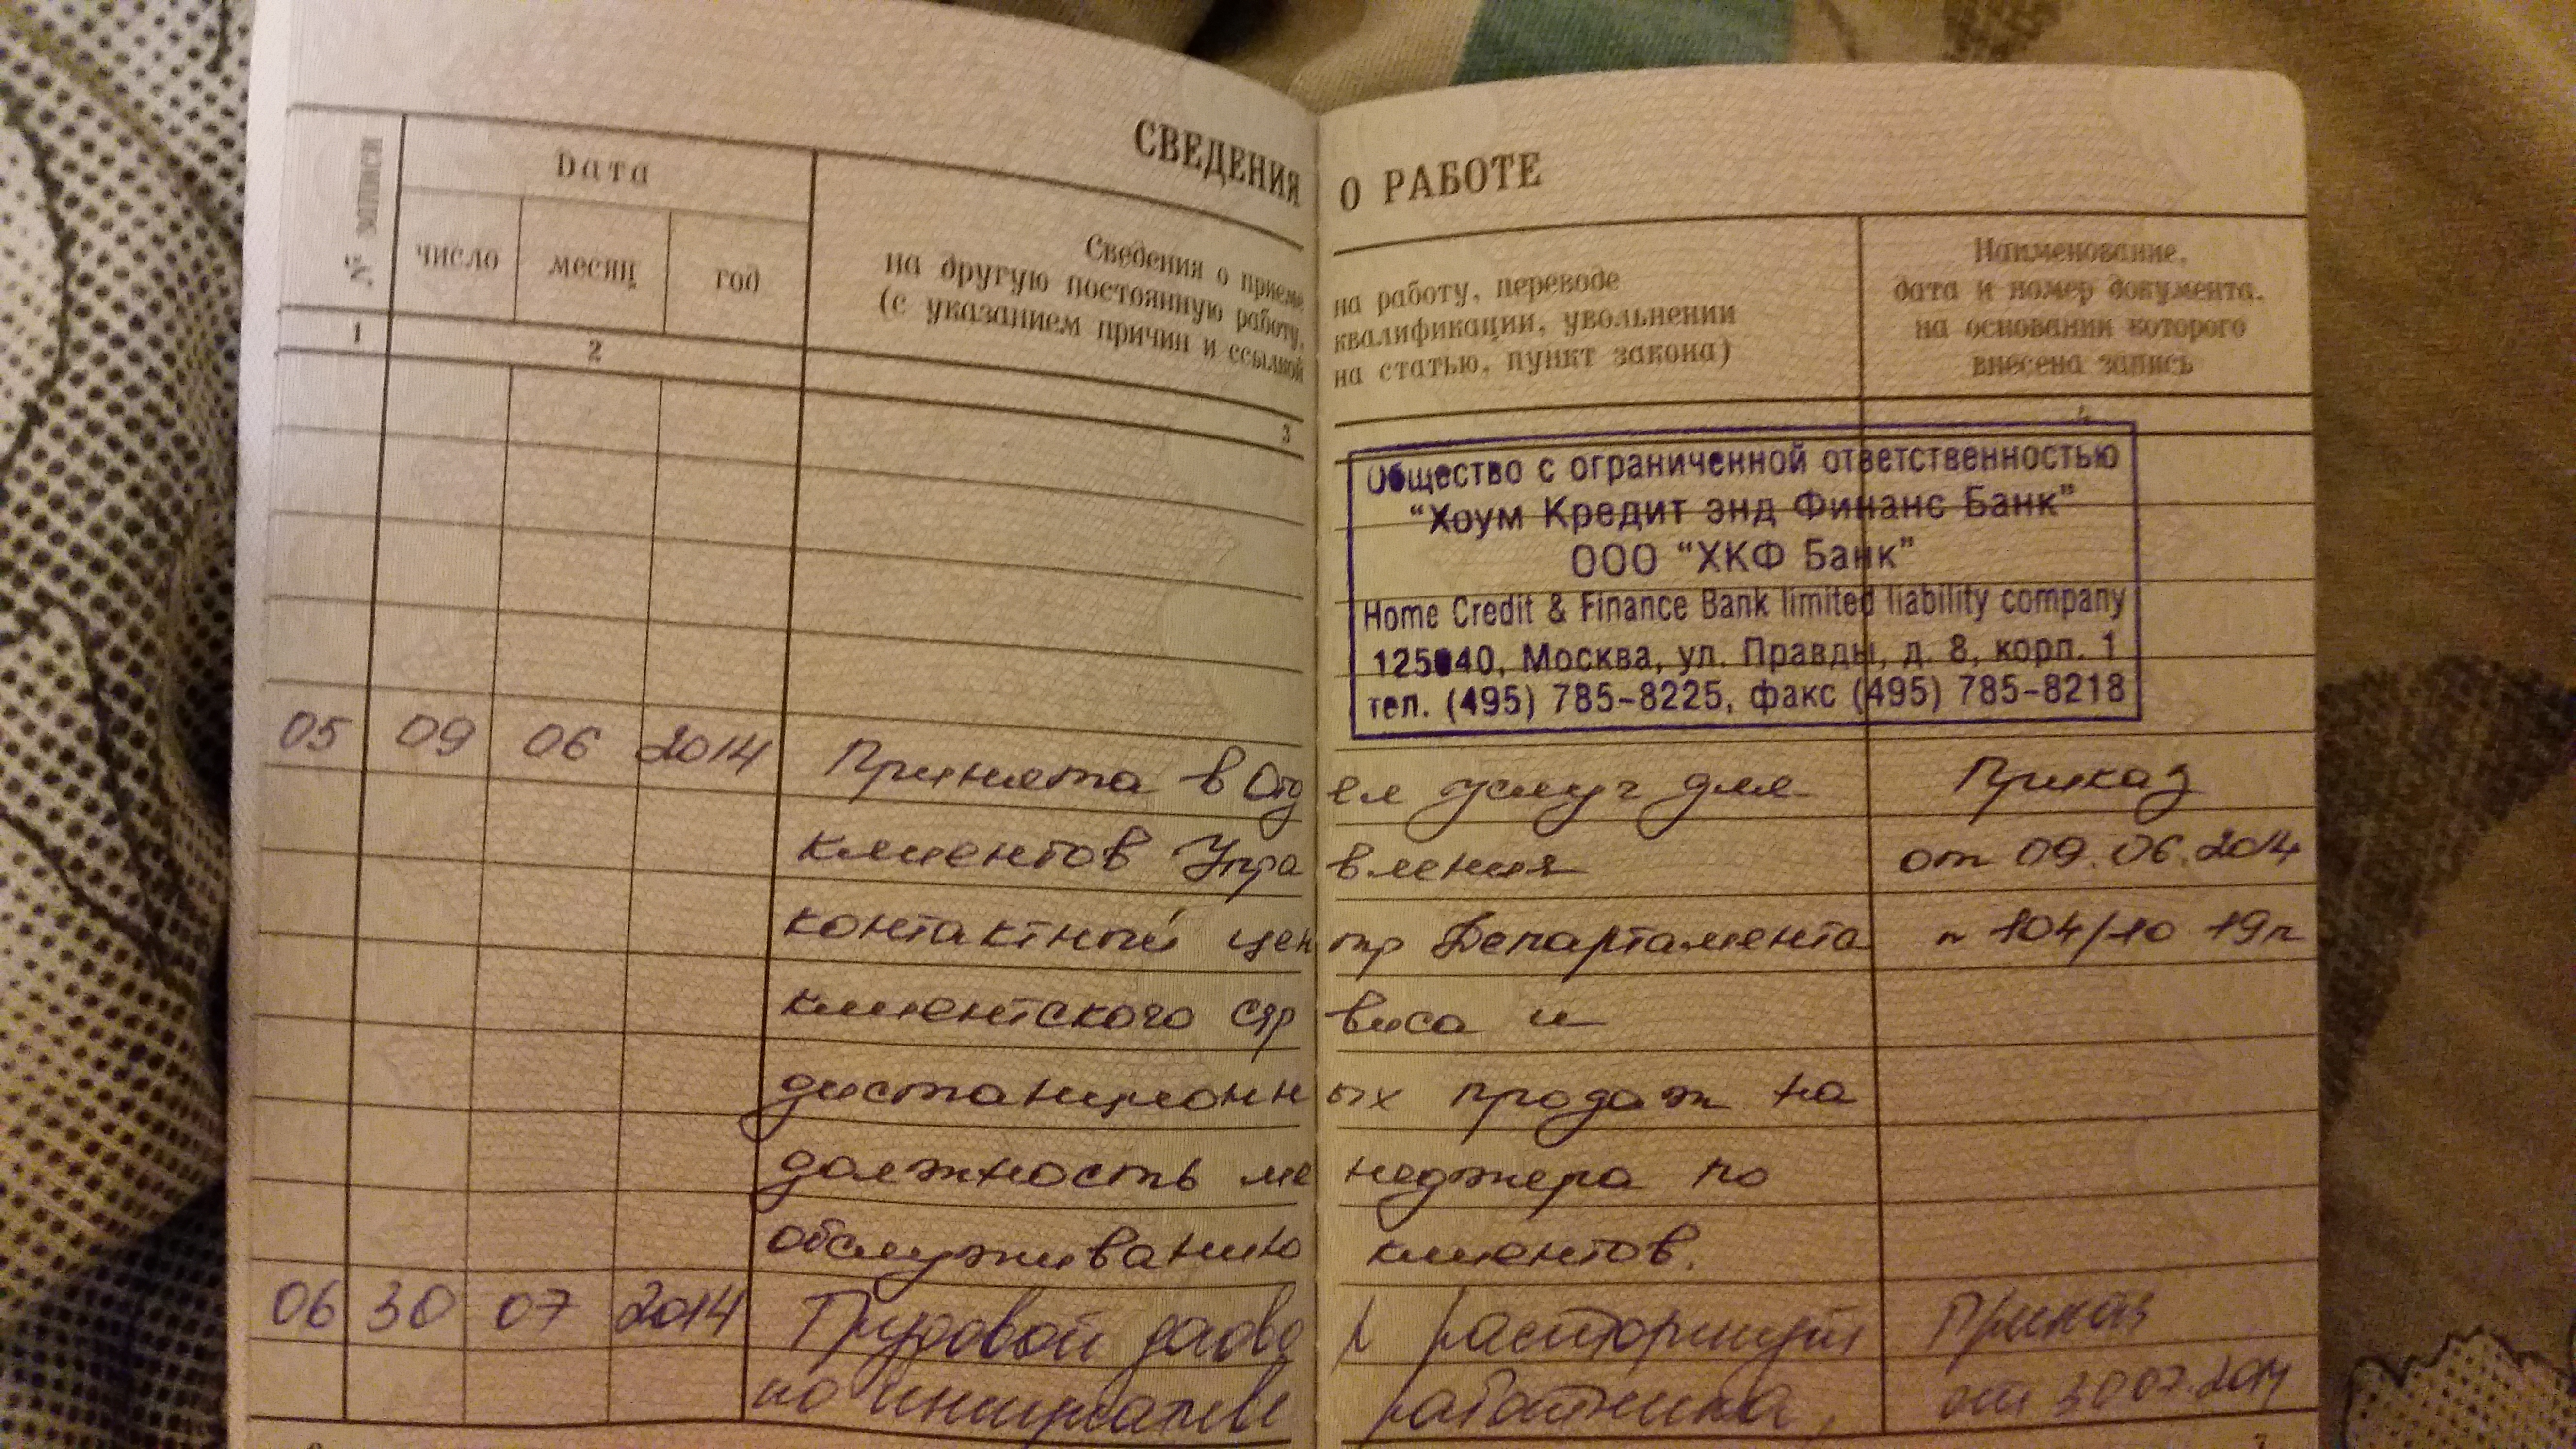 СВЕДЕНИЯ О РАБОТЕ
№ записи
Дата
число месяц год
Сведения о приеме на работу, переводе
на другую постоянную работу, квалификации, увольнении
(с указанием причин и ссылкой на статью, пункт закона)
Наименование,
дата и номер документа,
на основании которого
внесена запись
1 2 3 4
Общество с ограниченной ответственностью
"Хоум Кредит энд Финанс Банк"
ООО "ХКФ Банк"
Home Credit & Finance Bank limited liability company
125040, Москва, ул. Правды, д. 8, корп. 1
тел. (495) 785-8225, факс (495) 785-8218
05 09 06 2014 Принята в Отдел услуг для Приказ
клиентов Управления от 09.06.2014
контактный центр Департамента n 104/10 19п
клиентского сервиса и
дистанционных продаж на
должность менеджера по
обслуживанию клиентов.
06 30 07 2014 Трудовой договор расторгнут Приказ
по инициативе работника, от 30.07.2014